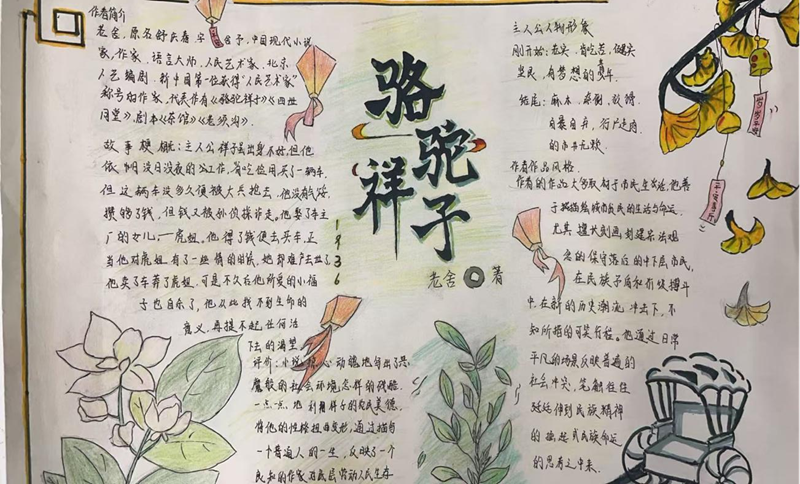 作者简介
老舍,原名舒庆春字舍予,中国现代小说
家,作家,语言大师,人民艺术家,北京
人艺编剧,新中国第一位获得"人民艺术家"
称号的作家,代表作有《骆驼祥子》《四世
同堂》,剧本《茶馆》《龙须沟》.
故事梗概:主人公祥子虽出身不好,但他
依旧没日没夜的工作,省吃俭用买了一辆车.
但这辆车没多久便被大兵抢去,他没有气馁
攒够了钱,但钱又被孙侦探诈走.他娶了车主
厂的女儿,虎妞.他得了钱便去买车,正
当他对虎妞,有了一些情的时候,她却难产去世了
他卖了车葬了虎妞,可是不久后他所爱的小福
子也自杀了,他从此找不到生命的
意义,再提不起任何活
下去的渴望
评价:小说惊心动魄地勾出了恶
魔般的社会环境怎样的残酷
一点一点地利用祥子的农民美德
将他的性格扭曲变形,通过描句
一个普通人的一生,反映了一个
良知的作家对底层劳动人民生存
骆驼祥子
1936
老舍 著
主人公人物形象
刚开始:老实,肯吃苦,健实
坚民,有梦想的青年.
结尾:麻木,潦倒,狡猾
自暴自弃,行尸走肉
的
作者作品风格.
作者的作品大多取材于市民生活,他善
于描绘城市贫民的生活与命运
尤其擅长刻画封建宗法观
念的保守落后的中下层市民,
在民族矛盾和阶级搏斗
中,在新的历史潮流冲击下,不
知所措的可笑行径.他通过日常
平凡的场景反映普遍的
社会冲突,笔触往往
延伸到民族精神
的挖起或民族命运
的思考之中来.
平安喜乐